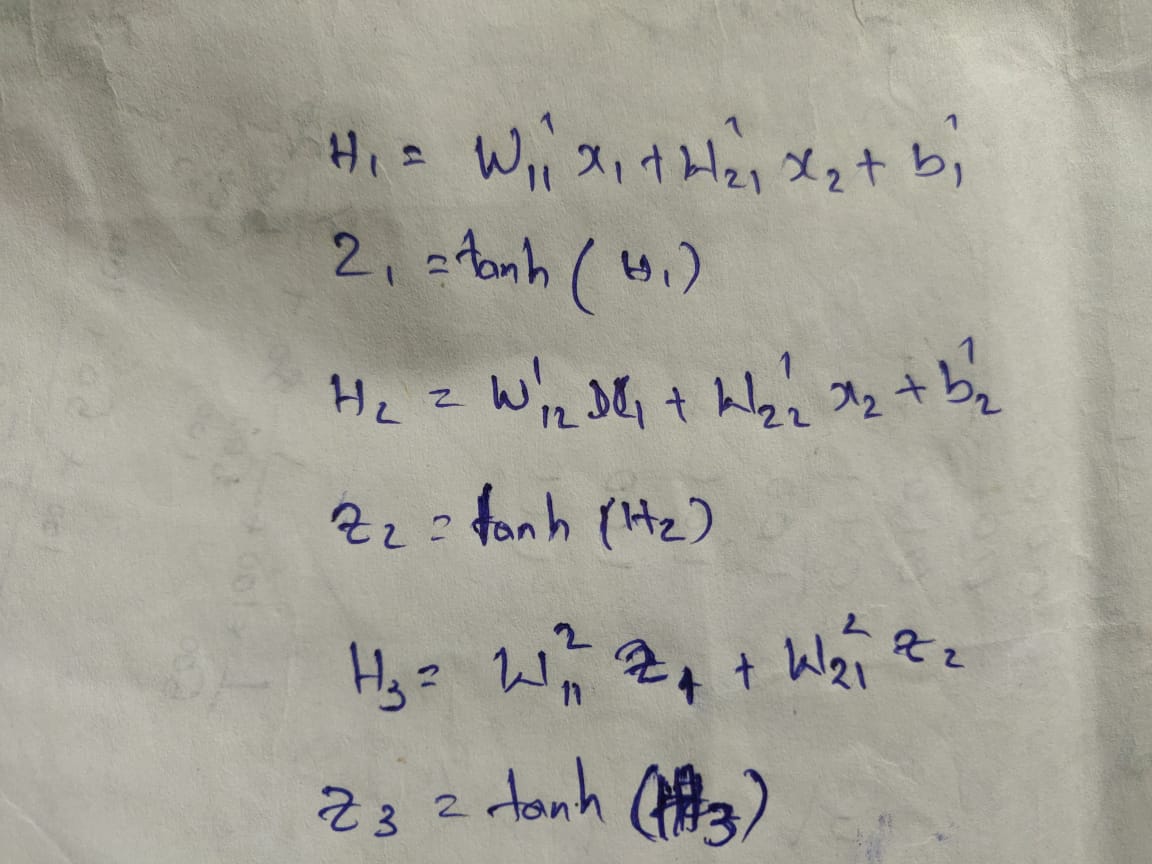 H₁ = W₁₁¹ x₁ + W₂₁¹ x₂ + b₁¹
Z₁ = tanh (H₁)
H₂ = W₁₂¹ x₁ + W₂₂¹ x₂ + b₂¹
Z₂ = tanh (H₂)
H₃ = W₁₁² Z₁ + W₂₁² Z₂
Z₃ = tanh (H₃)